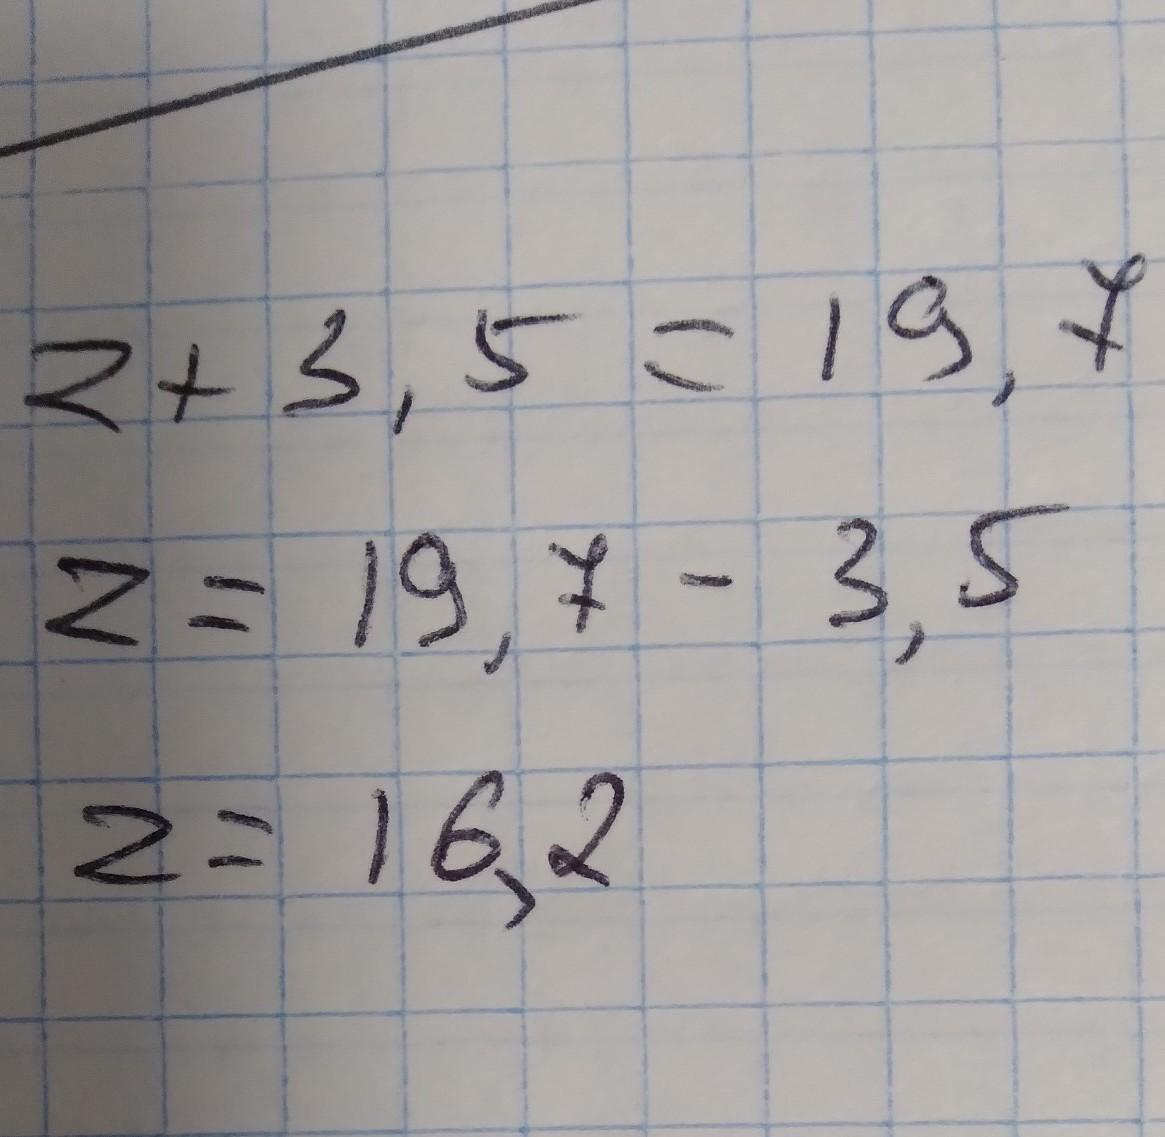 z + 3,5 = 19,7
z = 19,7 - 3,5
z = 16,2